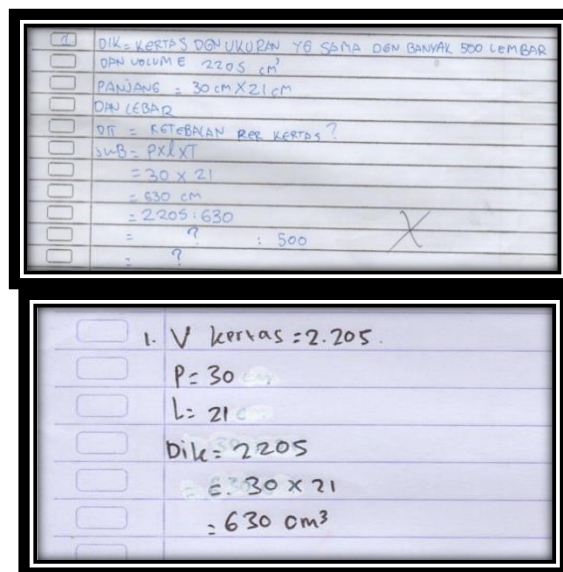 1 DIK = KERTAS DGN UKURAN YG SAMA DGN BANYAK 500 LEMBAR
DAN VOLUME 2205 cm³
PANJANG = 30 cm X 21 cm
DAN LEBAR
DIT = KETEBALAN PER KERTAS?
JWB = PXlXT
= 30 X 21
= 630 cm
= 2205 : 630
= ? : 500
= ?
1. V kertas = 2.205.
P = 30
L = 21
Dik = 2205
= 30 X 21
= 630 cm³